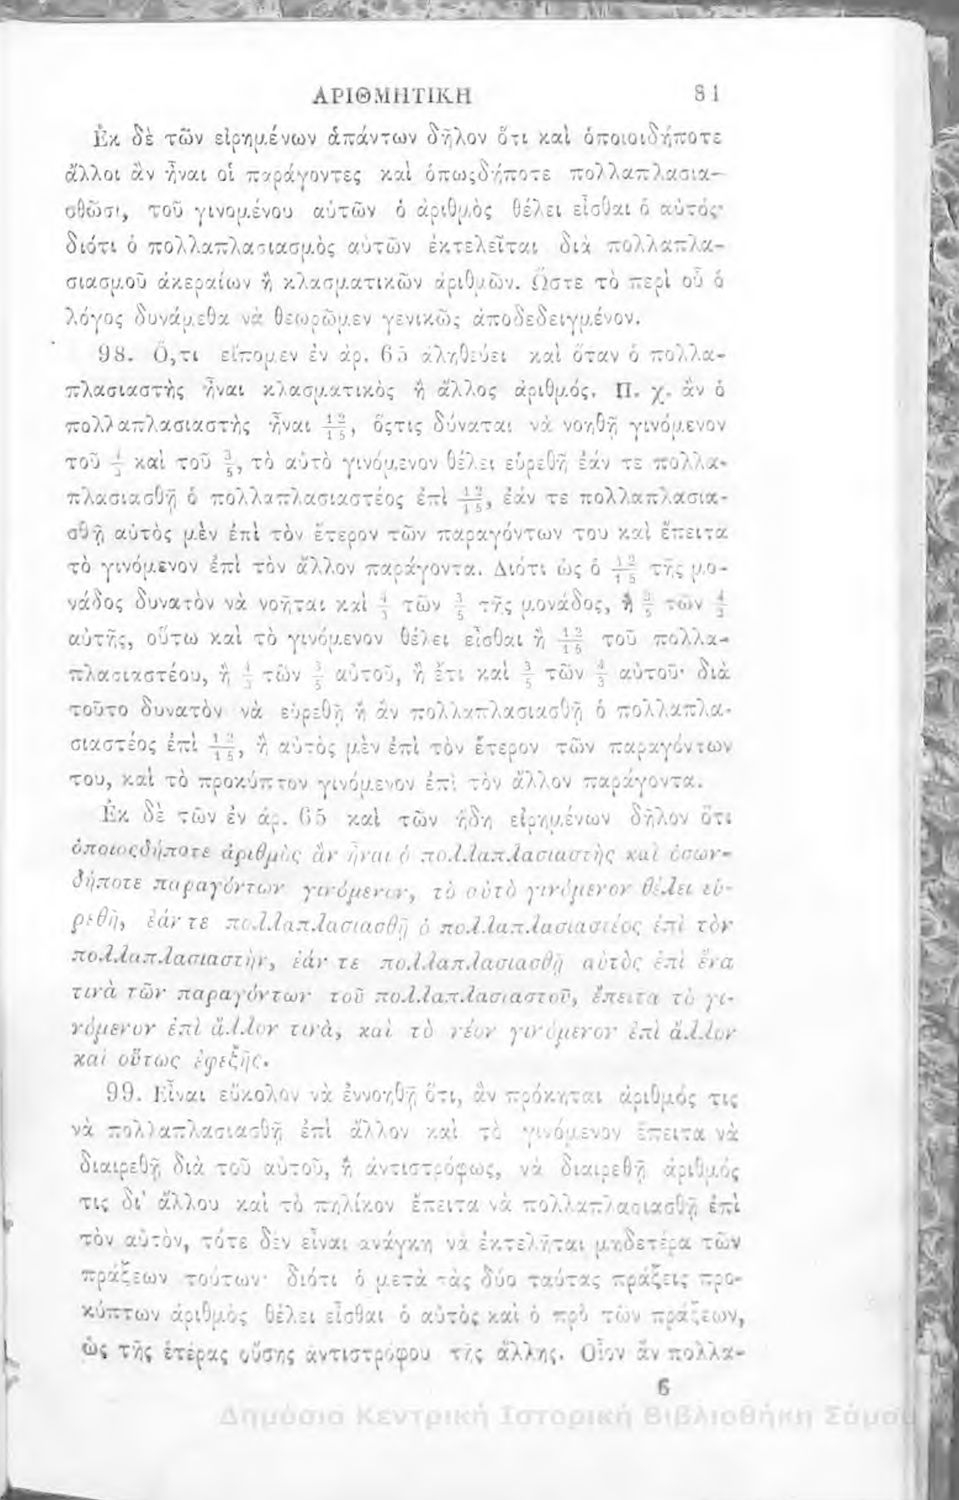 ΑΡΙΘΜΗΤΙΚΗ 81
Ἐκ δὲ τῶν εἰρημένων ἁπάντων δῆλον ὅτι καὶ ὁποιοιδήποτε
ἄλλοι ἂν ἦναι οἱ παράγοντες καὶ ὁπωςδήποτε πολλαπλασια-
σθῶσι, τοῦ γινομένου αὐτῶν ὁ ἀριθμὸς θέλει εἶσθαι ὁ αὐτός·
διότι ὁ πολλαπλασιασμὸς αὐτῶν ἐκτελεῖται διὰ πολλαπλα-
σιασμοῦ ἀκεραίων ἢ κλασματικῶν ἀριθμῶν. Ὥστε τὸ περὶ οὗ ὁ
λόγος δυνάμεθα νὰ θεωρῶμεν γενικῶς ἀποδεδειγμένον.
98. Ὅ,τι εἴπομεν ἐν ἀρ. 65 ἀληθεύει καὶ ὅταν ὁ πολλα-
πλασιαστὴς ἦναι κλασματικὸς ἢ ἄλλος ἀριθμός. Π. χ. ἂν ὁ
πολλαπλασιαστὴς ἦναι 12/15, ὅςτις δύναται νὰ νοηθῇ γινόμενον
τοῦ 4/3 καὶ τοῦ 3/5, τὸ αὐτὸ γινόμενον θέλει εὑρεθῆ ἐάν τε πολλα-
πλασιασθῇ ὁ πολλαπλασιαστέος ἐπὶ 12/15, ἐάν τε πολλαπλασια-
σθῇ αὐτὸς μὲν ἐπὶ τὸν ἕτερον τῶν παραγόντων του καὶ ἔπειτα
τὸ γινόμενον ἐπὶ τὸν ἄλλον παράγοντα. Διότι ὡς ὁ 12/15 τῆς μο-
νάδος δυνατὸν νὰ νοῆται καὶ 4/3 τῶν 3/5 τῆς μονάδος, ἢ 3/5 τῶν 4/3
αὐτῆς, οὕτω καὶ τὸ γινόμενον θέλει εἶσθαι ἢ 12/15 τοῦ πολλα-
πλασιαστέου, ἢ 4/3 τῶν 3/5 αὐτοῦ, ἢ ἔτι καὶ 3/5 τῶν 4/3 αὐτοῦ· διὰ
τοῦτο δυνατὸν νὰ εὑρεθῇ ἢ ἂν πολλαπλασιασθῇ ὁ πολλαπλα-
σιαστέος ἐπὶ 12/15, ἢ αὐτὸς μὲν ἐπὶ τὸν ἕτερον τῶν παραγόντων
του, καὶ τὸ προκύπτον γινόμενον ἐπὶ τὸν ἄλλον παράγοντα.
Ἐκ δὲ τῶν ἐν ἀρ. 65 καὶ τῶν ἤδη εἰρημένων δῆλον ὅτι
ὁποιοςδήποτε ἀριθμὸς ἂν ἦναι ὁ πολλαπλασιαστὴς καὶ ὁσων-
δήποτε παραγόντων γινόμενον, τὸ αὐτὸ γινόμενον θέλει εὑ-
ρεθῆ, ἐάν τε πολλαπλασιασθῇ ὁ πολλαπλασιαστέος ἐπὶ τὸν
πολλαπλασιαστὴν, ἐάν τε πολλαπλασιασθῇ αὐτὸς ἐπὶ ἕνα
τινὰ τῶν παραγόντων τοῦ πολλαπλασιαστοῦ, ἔπειτα τὸ γι-
νόμενον ἐπὶ ἄλλον τινὰ, καὶ τὸ νέον γινόμενον ἐπὶ ἄλλον
καὶ οὕτως ἐφεξῆς.
99. Εἶναι εὔκολον νὰ ἐννοηθῇ ὅτι, ἂν πρόκηται ἀριθμός τις
νὰ πολλαπλασιασθῇ ἐπὶ ἄλλον καὶ τὸ γινόμενον ἔπειτα νὰ
διαιρεθῇ διὰ τοῦ αὐτοῦ, ἢ ἀντιστρόφως, νὰ διαιρεθῇ ἀριθμός
τις δι' ἄλλου καὶ τὸ πηλίκον ἔπειτα νὰ πολλαπλασιασθῇ ἐπὶ
τὸν αὐτὸν, τότε δὲν εἶναι ἀνάγκη νὰ ἐκτελῆται μηδετέρα τῶν
πράξεων τούτων· διότι ὁ μετὰ τὰς δύο ταύτας πράξεις προ-
κύπτων ἀριθμὸς θέλει εἶσθαι ὁ αὐτὸς καὶ ὁ πρὸ τῶν πράξεων,
ὡς τῆς ἑτέρας οὔσης ἀντιστρόφου τῆς ἄλλης. Οἷον ἂν πολλα-
6
Δημόσια Κεντρική Ιστορική Βιβλιοθήκη Σάμου